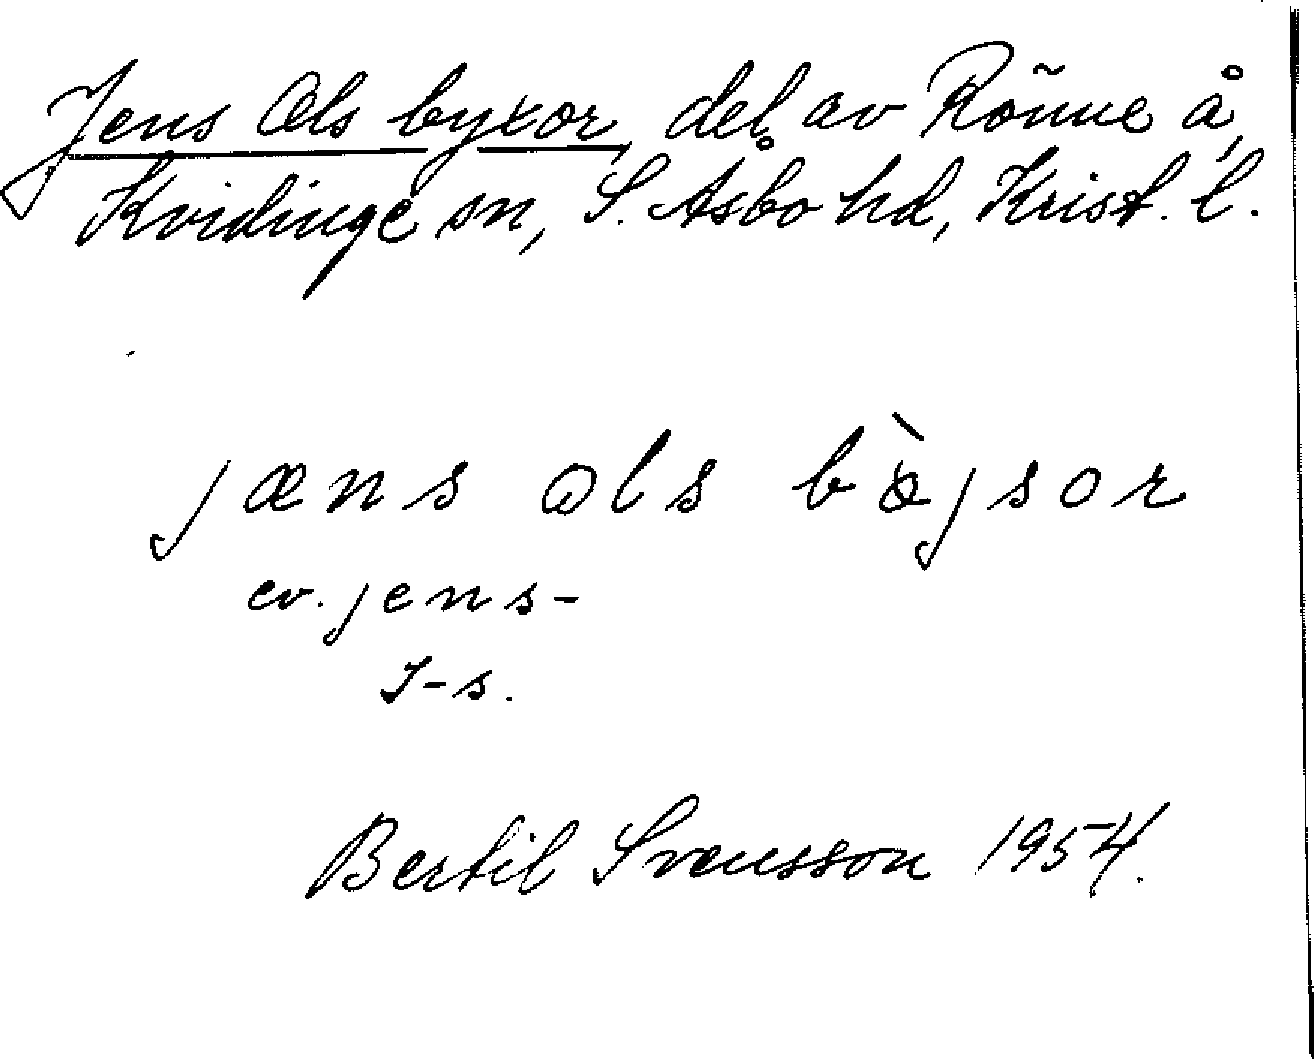 Jens Ols byxor, del av Rönne å,
Kvidinge sn, S. Åsbo hd, Krist. l.
jæns ols bøjsor
ev. jens-
I-s.
Bertil Svensson 1954.